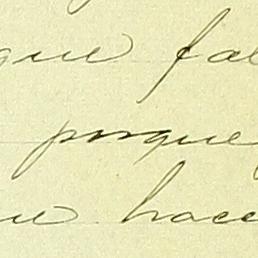 que fal
porque
ue hace